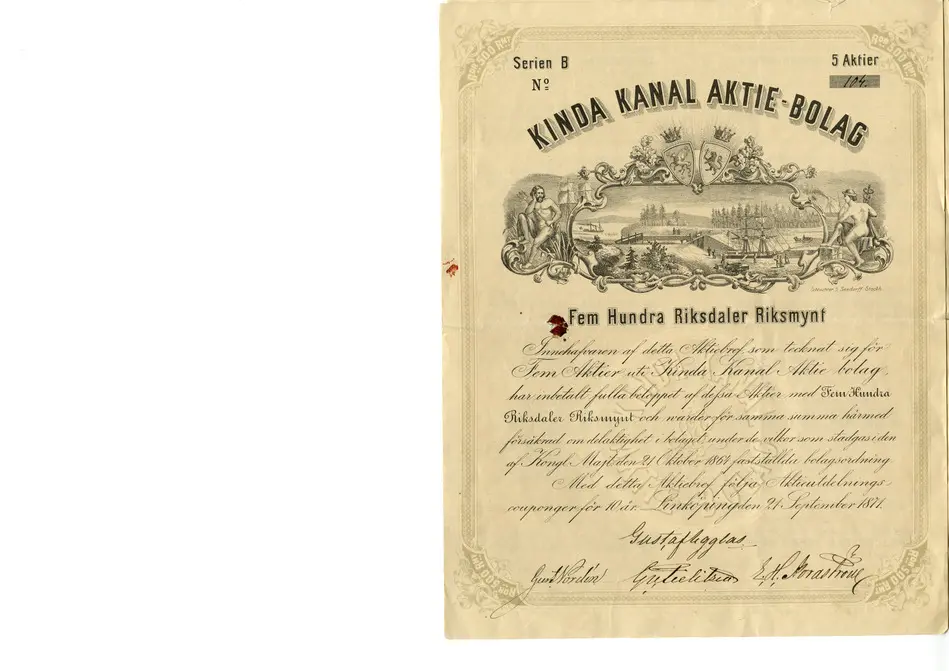 Serien B
5 Aktier
Nº
104.
KINDA KANAL AKTIE-BOLAG
Fem Hundra Riksdaler Riksmynt
Innehafvaren af detta Aktiebref, som tecknat sig för
Fem Aktier uti Kinda Kanal Aktie bolag,
har inbetalt fulla beloppet af dessa Aktier med Fem Hundra
Riksdaler Riksmynt och warder för samma summa härmed
försäkrad om delaktighet i bolaget, under de vilkor som stadgas i den
af Kongl. Majt den 21 Oktober 1864 fastställda bolagsordning.
Med detta Aktiebref följa Aktieutdelnings-
couponger för 10 år. Linköping den 21 September 1871.